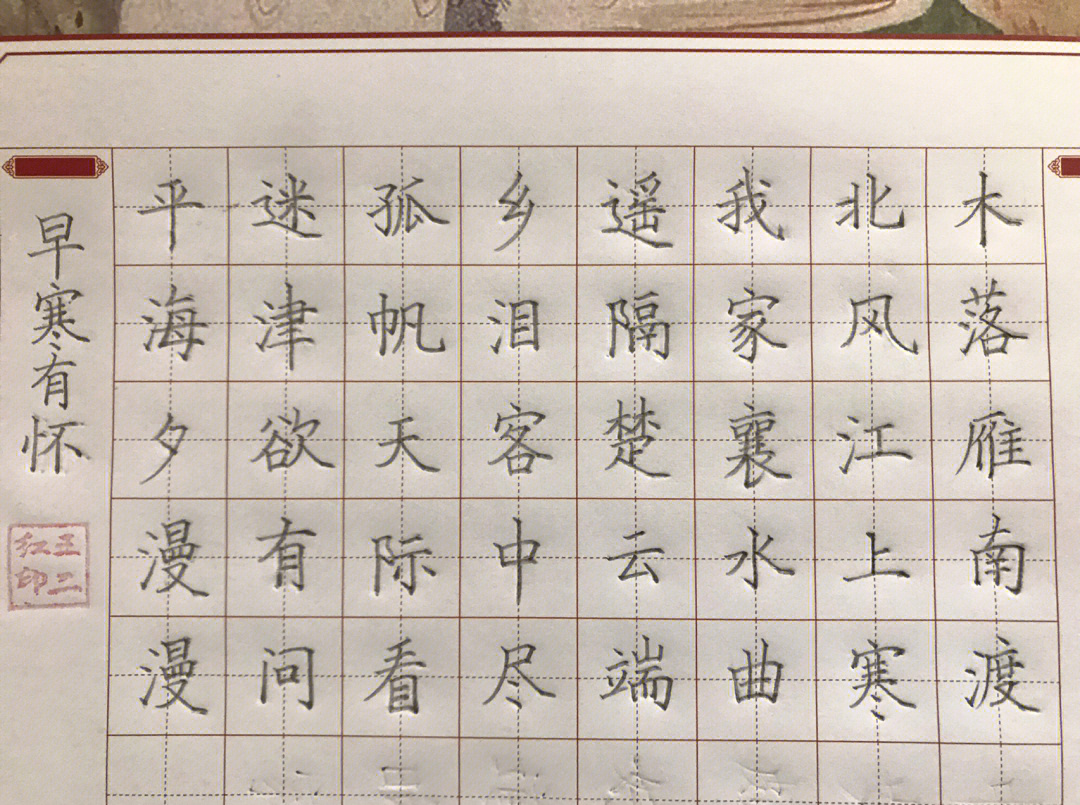 木落雁南渡
北风江上寒
我家襄水曲
遥隔楚云端
乡泪客中尽
孤帆天际看
迷津欲有问
平海夕漫漫
早寒有怀
王二红印